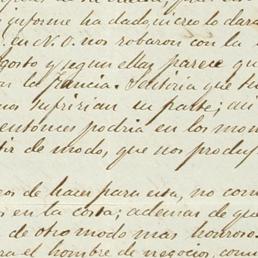 informe ha dadquicreo lo dara
en N.O. nos robaron con la
gosto y segun ellas parece qu
la Francia. Sentiria que
nos sufririan en parte; asi
entónces podria en los mom
tir de modo, que nos produj
cos de hacer para esta, no com
s en la costa; ademas de que
de otro modo mas honroso.
ra el hombre de negocios, com